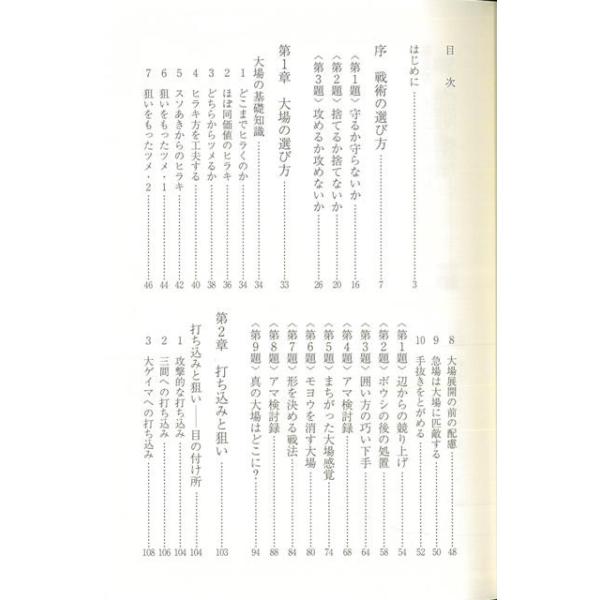 目次
はじめに……3
序 戦術の選び方……7
〈第1題〉守るか守らないか……16
〈第2題〉捨てるか捨てないか……20
〈第3題〉攻めるか攻めないか……26
第1章 大場の選び方……33
大場の基礎知識……34
1 どこまでヒラくのか……34
2 ほぼ同価値のヒラキ……36
3 どちらからツメるか……38
4 ヒラキ方を工夫する……40
5 スソあきからのヒラキ……42
6 狙いをもったツメ・1……44
7 狙いをもったツメ・2……46
8 大場展開の前の配慮……48
9 急場は大場に匹敵する……50
10 手抜きをとがめる……52
〈第1題〉辺からの競り上げ……54
〈第2題〉ボウシの後の処置……58
〈第3題〉囲い方の巧い下手……64
〈第4題〉アマ検討録……68
〈第5題〉まちがった大場感覚……74
〈第6題〉モヨウを消す大場……80
〈第7題〉形を決める戦法……84
〈第8題〉アマ検討録……88
〈第9題〉真の大場はどこに?……94
第2章 打ち込みと狙い……103
打ち込みと狙い——目の付け所……104
1 攻撃的な打ち込み……104
2 三間への打ち込み……106
3 大ゲイマへの打ち込み……108